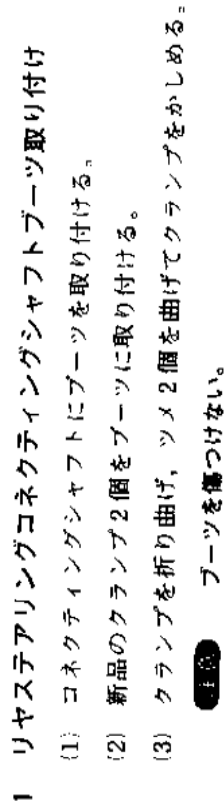 1 リヤステアリングコネクティングシャフトブーツ取り付け
(1) コネクティングシャフトにブーツを取り付ける。
(2) 新品のクランプ2個をブーツに取り付ける。
(3) クランプを折り曲げ，ツメ2個を曲げてクランプをかしめる。
ブーツを傷つけない。